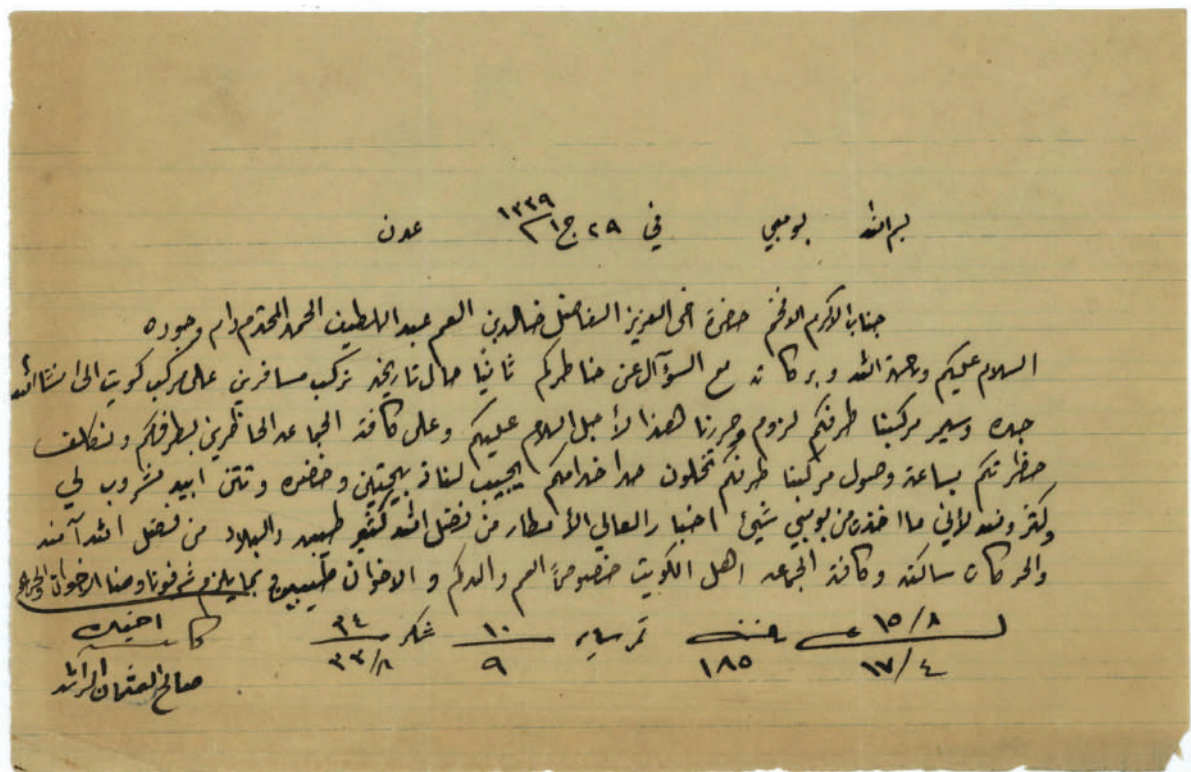 بسم الله بومبي في ٢٩ ج١ ١٣٣٩ عدن
جناب الاكرم الافخم حضرة اخي العزيز الفاضل خالد بن العم عبد اللطيف الحمد المحترم دام وجوده
السلام عليكم ورحمة الله وبركاته مع السؤآل عن خاطركم ثانياً حال تاريخه نركب مسافرين على مركب كويت الى انشاالله
جده وسير مركبنا طرفكم لزوم وحررنا هذا لأجل السلام عليكم وعلى كافة الجماعه الحاظرين بطرفكم ونكلف
حظرتكم بساعة وصول مركبنا طرفكم تخلون احد خدامكم يجيب لنا وخضره وتتن ابيد مشروب لي
لأني ما اخذت من بومبي شيئ اخبار العالي الأمطار من فضل الله كثير طيبه والبلاد من فضل الله آمنه
والحركات ساكنه وكافة الجماعه اهل الكويت خصوصاً العم والدكم والاخوان طيبين بما يلزم شرفونا ومنا الاخوان
١٥/٨ ١٠ شكر ٣٤ اخيك
١٧/٤ ١٨٥ ٩ ٣٣/٨ كاتبه
صالح العثمان الراشد